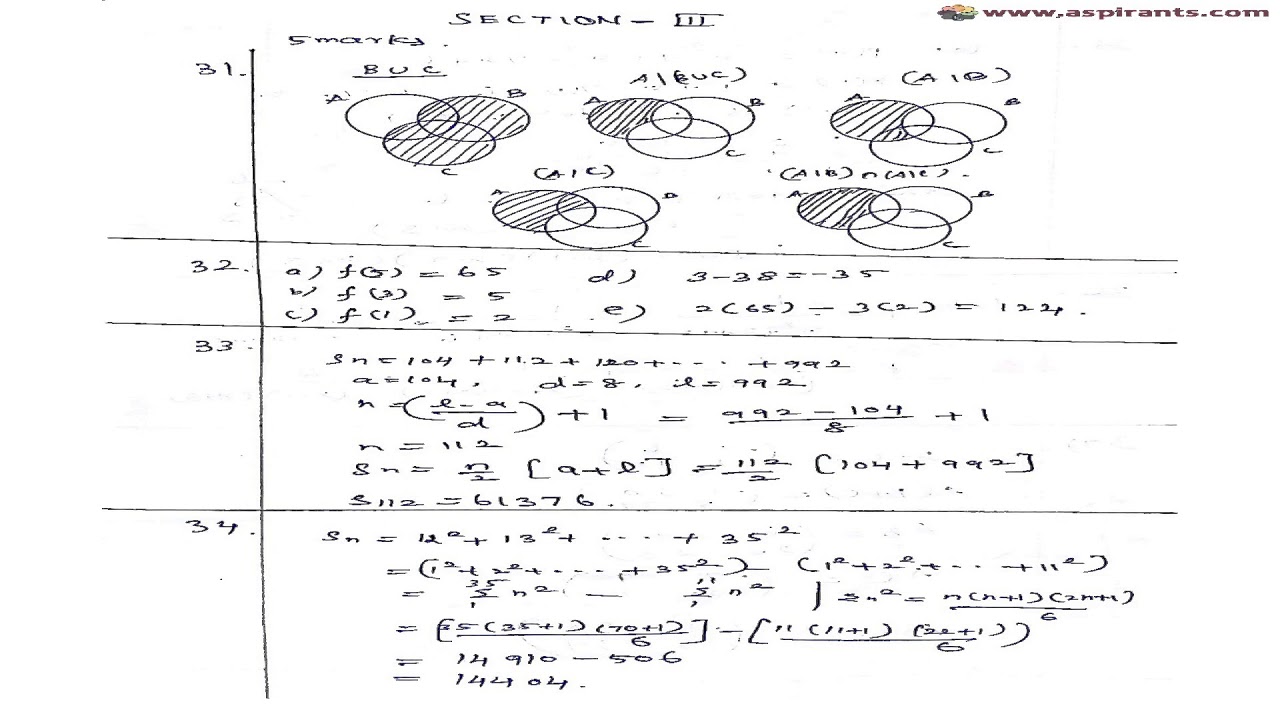 www.aspirants.com
SECTION - III
5 marks.
31.
B ∪ C
A B C
A\(B∪C)
A B C
(A\B)
A B C
(A\C)
A B C
(A\B)∩(A\C).
A B C
32.
a) f(5) = 65 d) 3-38=-35
b) f(3) = 5
c) f(1) = 2 e) 2(65) - 3(2) = 124.
33.
Sn=104+112+120+.... +992
a=104, d=8, l=992
n = (l-a/d) + 1 = 992-104/8 + 1
n = 112
Sn = n/2 [a+l] = 112/2 [104+992]
S112 = 61376.
34.
Sn = 12²+13²+ .... + 35²
= (1²+2²+ .... +35²) - (1²+2²+ .. +11²)
= 35Σ1 n² - 11Σ1 n² } Σn² = n(n+1)(2n+1)/6
= [35(35+1)(70+1)/6] - [11(11+1)(22+1)/6]
= 14910-506
= 14404.